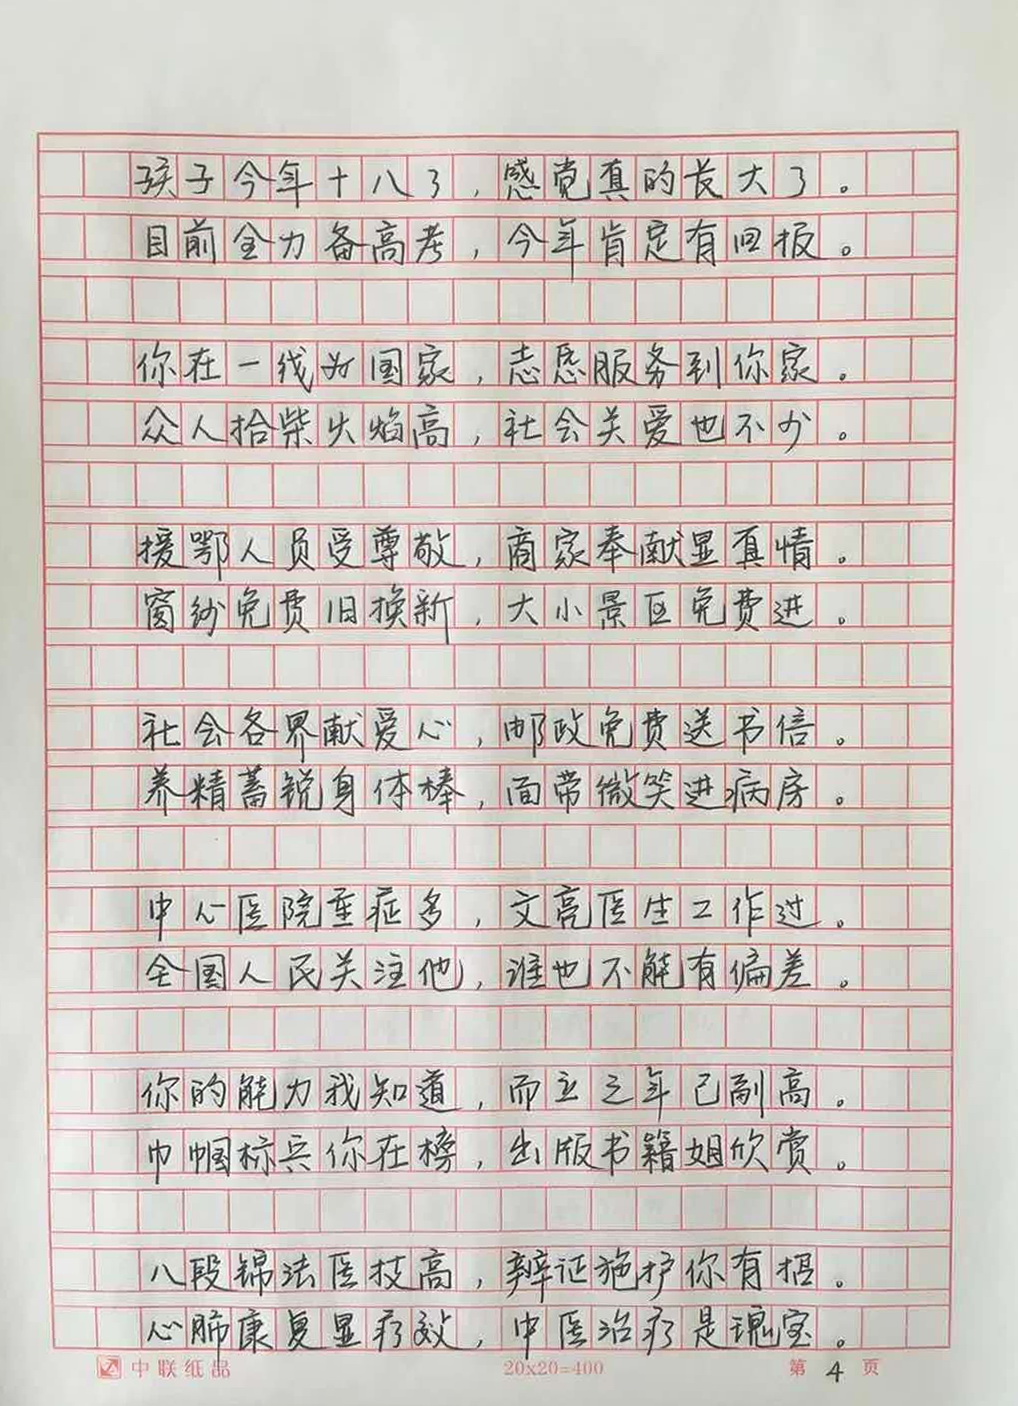 孩子今年十八了，感觉真的长大了。
目前全力备高考，今年肯定有回报。
你在一线为国家，志愿服务到你家。
众人拾柴火焰高，社会关爱也不少。
援鄂人员受尊敬，商家奉献显真情。
窗纱免费旧换新，大小景区免费进。
社会各界献爱心，邮政免费送书信。
养精蓄锐身体棒，面带微笑进病房。
中心医院重症多，文亮医生工作过。
全国人民关注他，谁也不能有偏差。
你的能力我知道，而立之年已副高。
巾帼标兵你在榜，出版书籍姐欣赏。
八段锦法医技高，辨证施护你有招。
心肺康复显疗效，中医治疗是瑰宝。
中联纸品 20x20=400 第 4 页